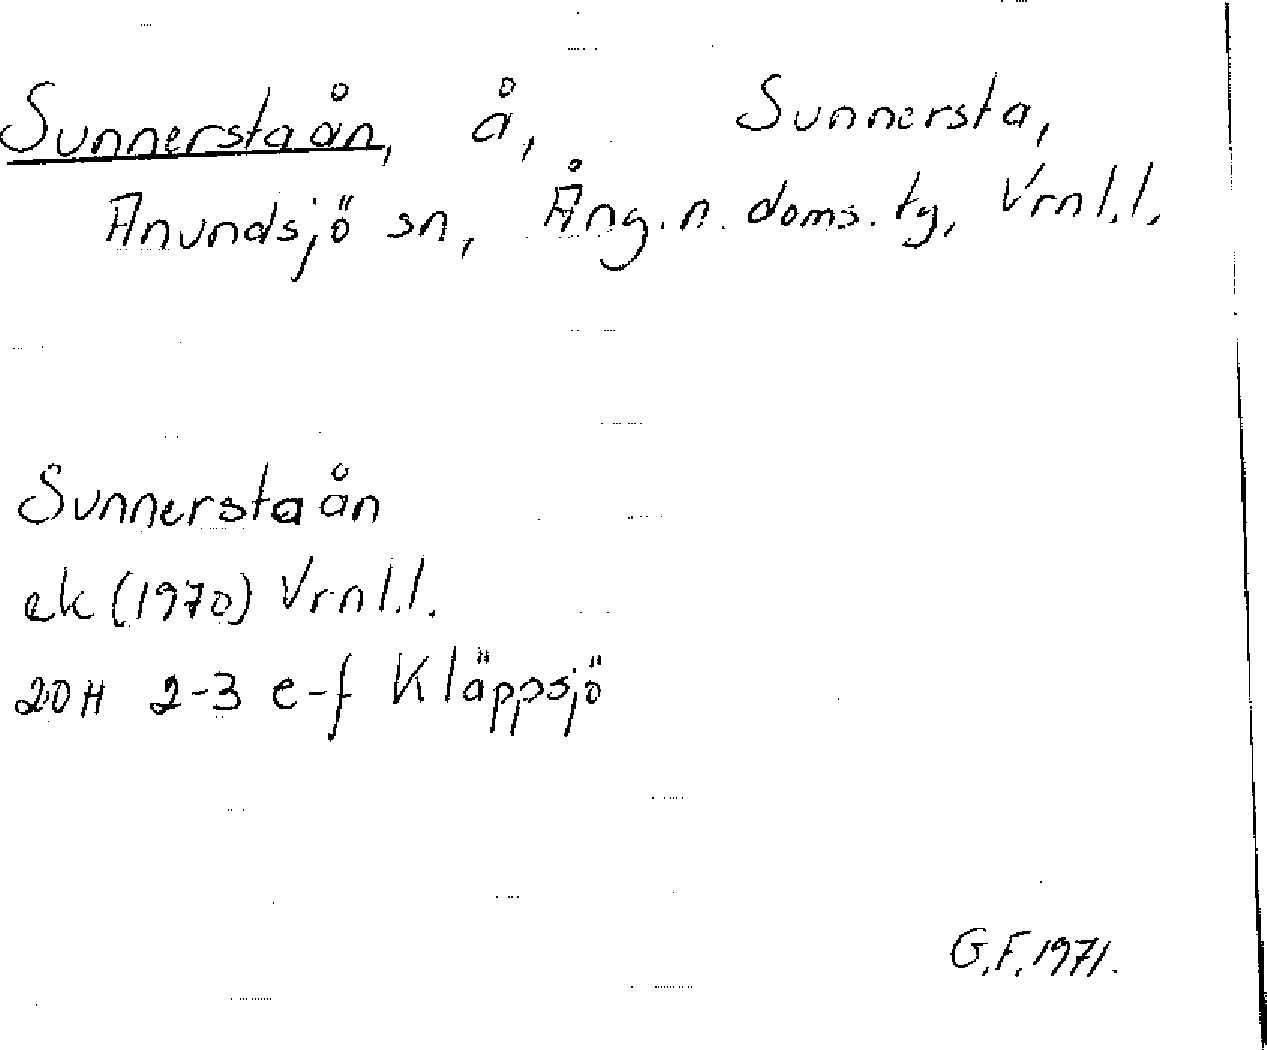 Sunnerstaån, å, Sunnersta,
Anundsjö sn, Ång.n. doms. tg, Vrnl.l.
Sunnerstaån
ek (1970) Vrnl.l.
20H 2-3 e-f Kläppsjö
G.F. 1971.